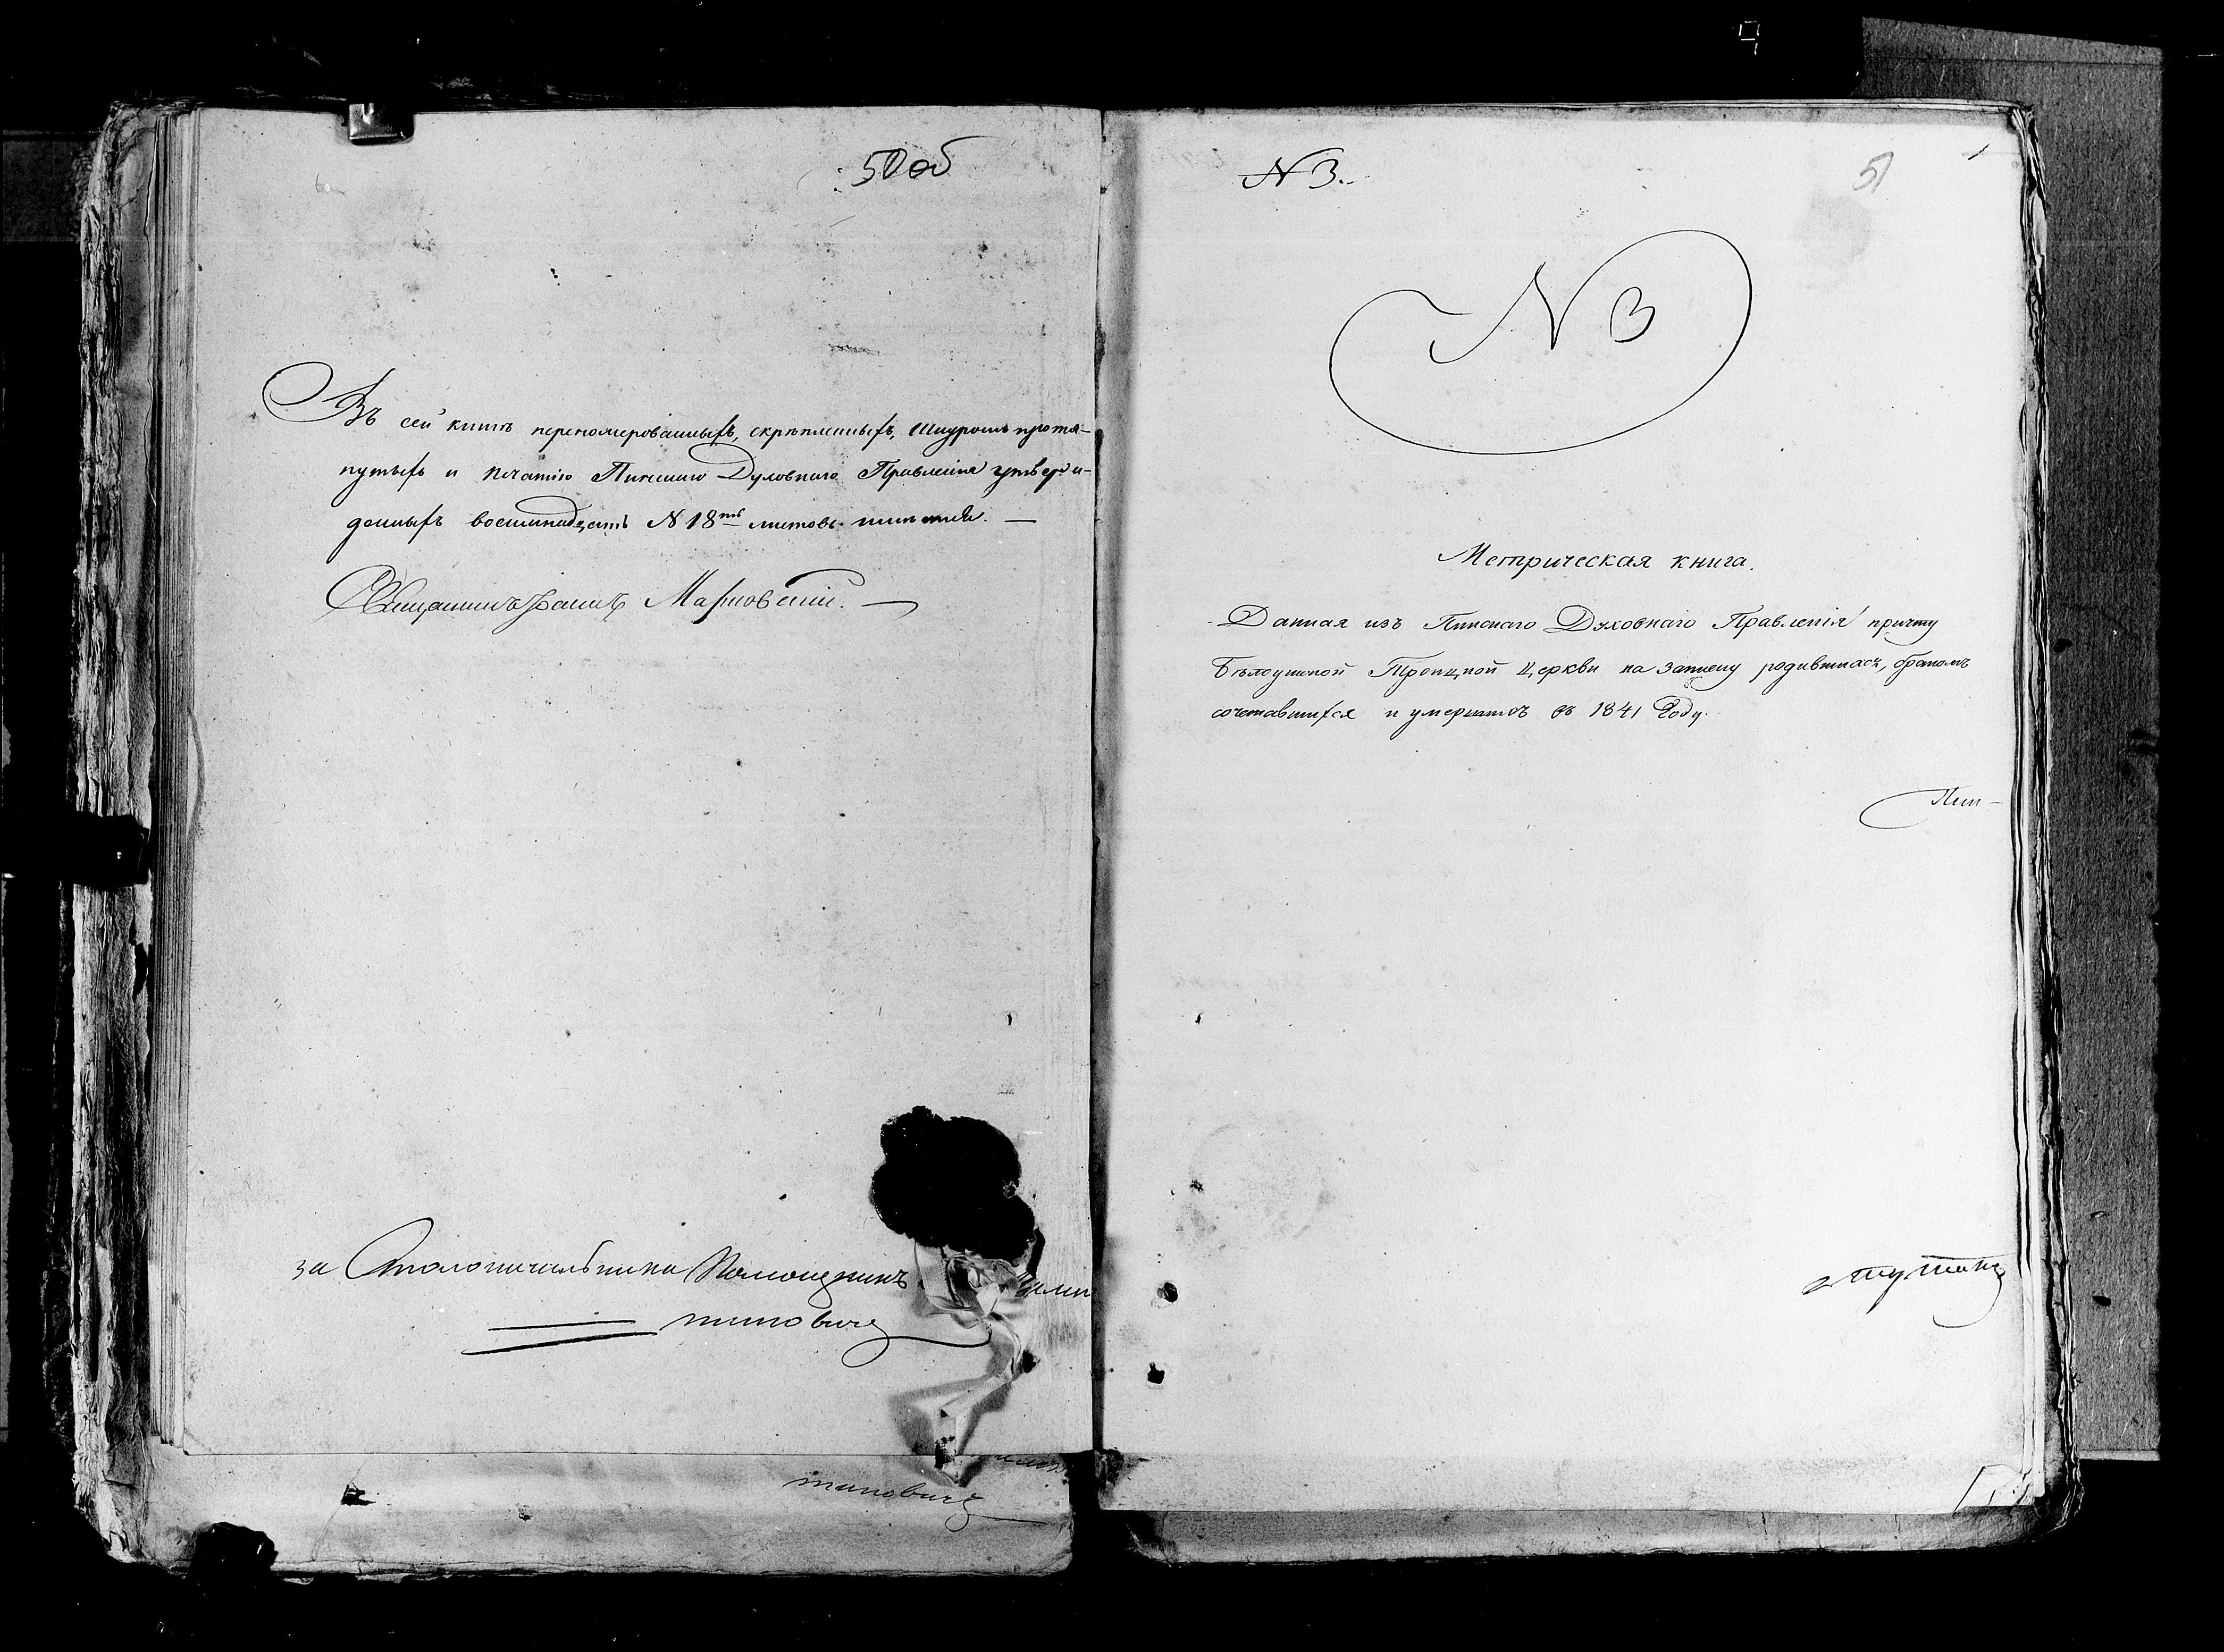 50об
Въ сей книгѣ переномерованныхъ, скрѣпленныхъ, шнуромъ протя-
нутыхъ и печатію Пинскаго Духовнаго Правленія утверж-
денныхъ восемнадцать N 18ть листовъ
Священникъ Марковскій. —
за Столоначальника Помощникъ
тиновичъ
тиновичъ
N 3.
51
N 3
Метрическая книга.
Данная изъ Пинскаго Духовнаго Правленія причту
Бѣлоушской Троицкой Церкви на записку родившихъ, бракомъ
сочетавшихся и умершихъ въ 1841 Году.
Пин-